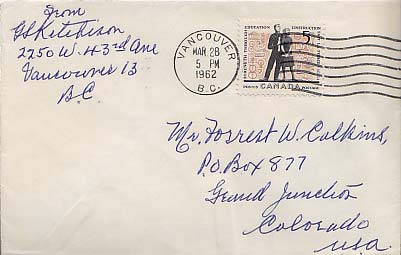 From
GS Kitchison
2250 W. 43rd Ave
Vancouver 13
B.C.
VANCOUVER
MAR 28
5 PM
1962
B.C.
EDUCATION
INSTRUCTION
5¢
POSTES CANADA POSTAGE
Mr. Forrest W. Calkins,
P.O. Box 877
Grand Junction
Colorado
U.S.A.